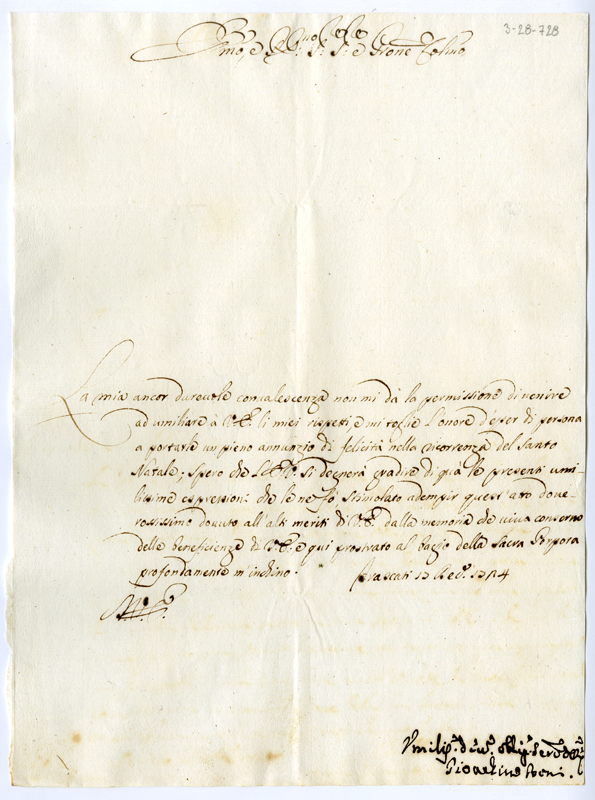 3-28-728
Emo, e Rmo Sig.r Sig.r e Prone Colmo
La mia ancor durevole convalescenza non mi dà la permissione di venire
ad umiliare à V.E. li miei rispetti e mi toglie l'onore d'esser di persona
a portarle un pieno annunzio di felicità nella ricorrenza del Santo
Natale; Spero che L'E.V. si degnerà gradire di quà le presenti umi-
lissime espressioni: che le ne fò stimolato adempir quest'atto dove-
rosissimo dovuto all'alti meriti di V.E. dalla memoria che viva conservo
delle beneficienze di V.E. e qui prostrato al bacio della Sacra Porpora
profondamente m'inchino.
Frascati 13 Dec.e 1714
Umilis.o devo. obligo. Servo